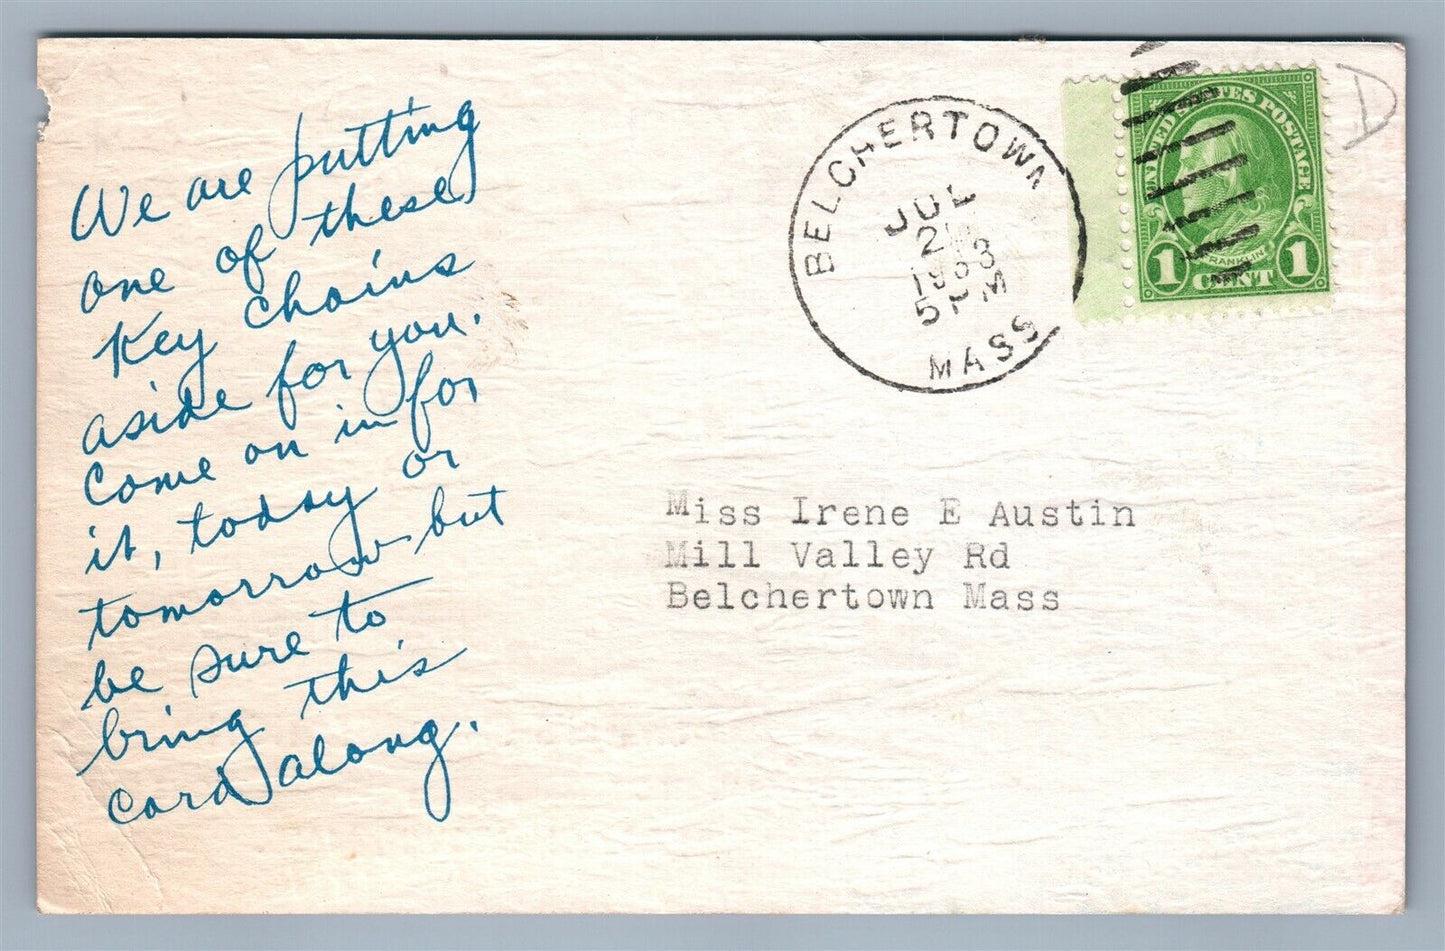 We are putting
one of these
Key chains
aside for you.
Come on in for
it, today or
tomorrow but
be sure to
bring this
card along.
BELCHERTOWN
JUL
1933
5 PM
MASS
UNITED STATES POSTAGE
FRANKLIN
1 CENT 1
D
Miss Irene E Austin
Mill Valley Rd
Belchertown Mass